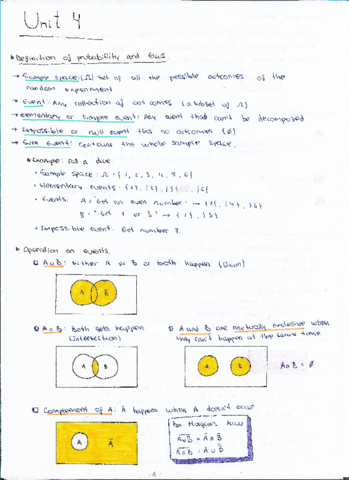 Unit 4
Definition of probability and laws.
→ Sample space (Ω) set of all the possible outcomes of the
random experiment
→ Event: Any collection of outcomes (a subset of Ω)
→ Elementary or simple event: Any event that can't be decomposed
→ Impossible or null event: Has no outcomes (∅)
→ Sure event: Contains the whole sample space.
Example: roll a dice
• Sample space: Ω = {1, 2, 3, 4, 5, 6}
• Elementary events: {1}, {2}, {3}, ... {6}
• Events: A = Get an even number → {2}, {4}, {6}
B = Get 1 or 3 → {1}, {3}
• Impossible event: Get number 7.
Operation on events.
A∪B: Either A or B or both happen (Union)
A B
A∩B: Both sets happen
(Intersection)
A B
A and B are mutually exclusive when
they can't happen at the same time
A B A∩B = ∅
Complement of A: Ā happens when A doesn't occur
A Ā
De Morgan's laws